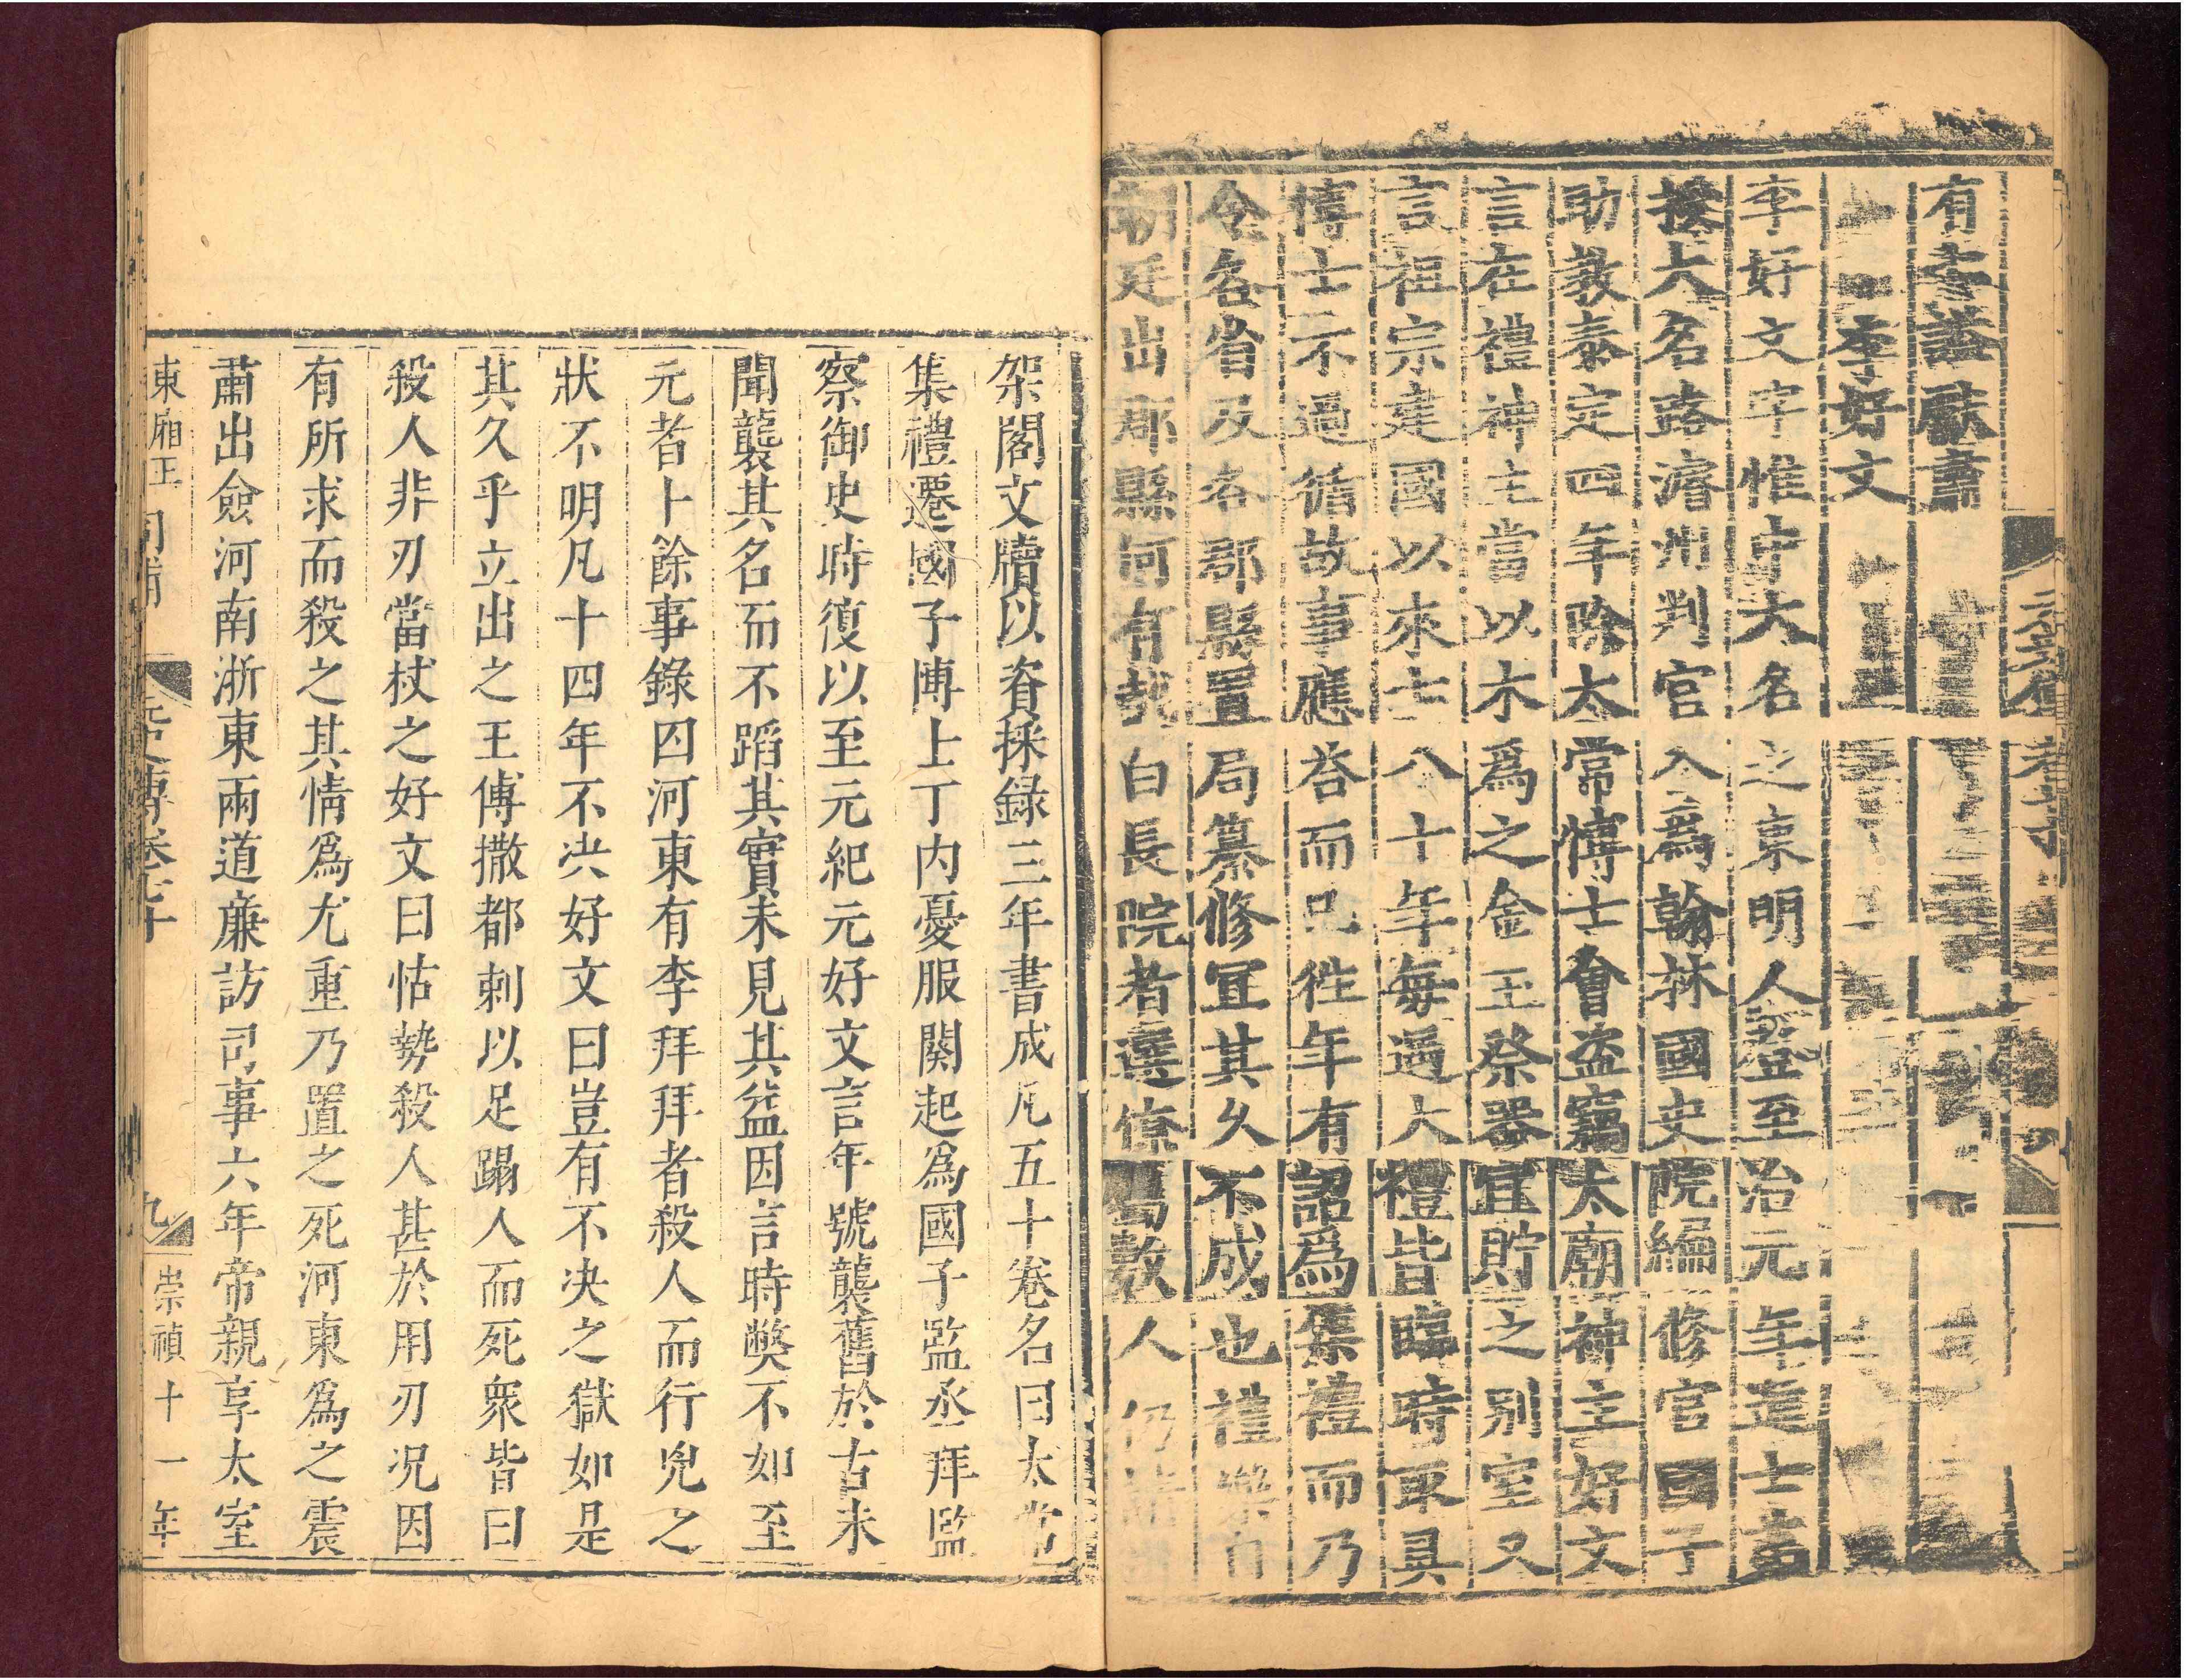 有奏議藏書
李好文
李好文字惟中大名之東明人登至治元年進士第
授大名路濬州判官入爲翰林國史院編修官國子
助教泰定四年除太常博士會盜竊太廟神主好文
言在禮神主當以木爲之金玉祭器宜貯之別室又
言祖宗建國以來七八十年每遇大禮皆臨時取具
博士不過循故事應荅而已徃年有詔爲集禮而乃
令各省及各郡縣置局纂修宜其久不成也禮樂自
朝廷出郡縣何有哉白長院者選僚屬數人仍請
架閣文牘以資採錄三年書成凡五十卷名曰太常
集禮遷國子博士丁内憂服闋起爲國子監丞拜監
察御史時復以至元紀元好文言年號襲舊於古未
聞襲其名而不蹈其實未見其益因言時弊不如至
元者十餘事錄囚河東有李拜拜者殺人而行兇之
狀不明凡十四年不决好文曰豈有不决之獄如是
其久乎立出之王傅撒都剌以足蹋人而死衆皆曰
殺人非刃當杖之好文曰怙勢殺人甚於用刃况因
有所求而殺之其情爲尤重乃置之死河東爲之震
肅出僉河南浙東兩道廉訪司事六年帝親享太室
東廂王
元史傳卷七十
九
崇禎十一年